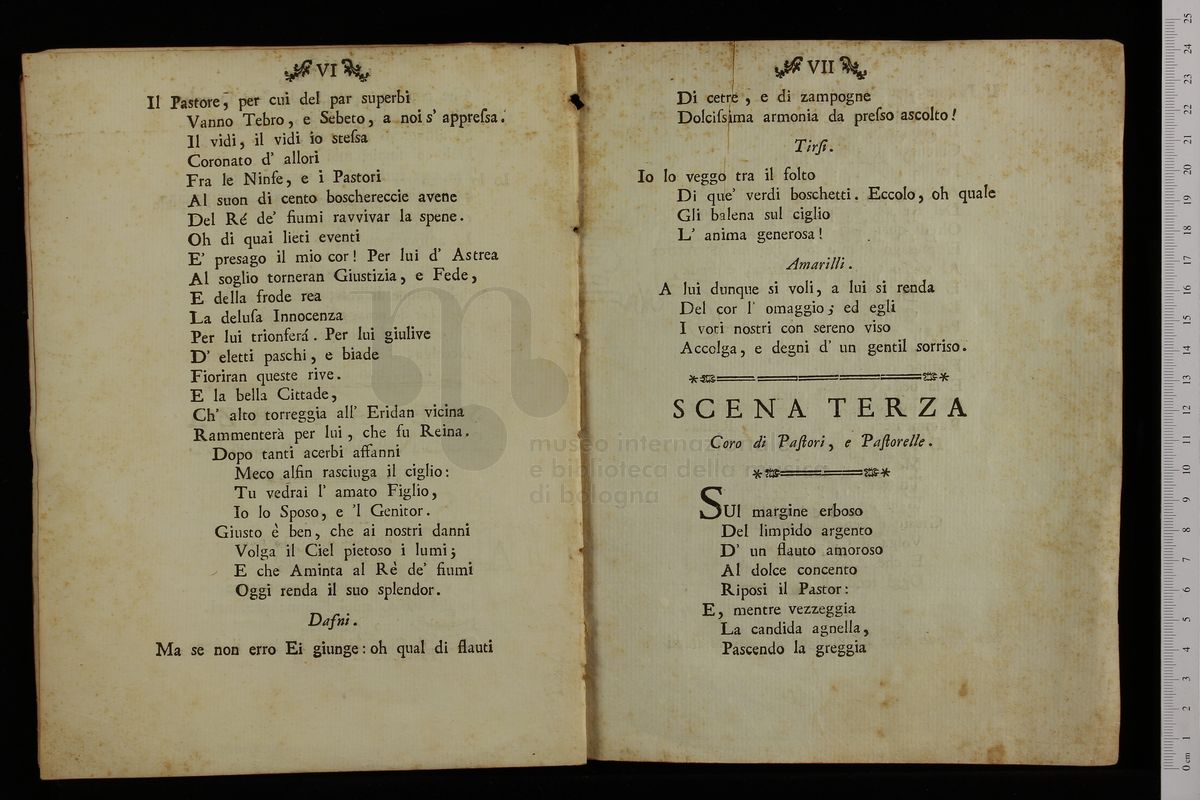 VI
Il Pastore, per cui del par superbi
Vanno Tebro, e Sebeto, a noi s' appreſsa.
Il vidi, il vidi io steſsa
Coronato d' allori
Fra le Ninfe, e i Pastori
Al suon di cento boschereccie avene
Del Ré de' fiumi ravvivar la spene.
Oh di quai lieti eventi
E' presago il mio cor! Per lui d' Astrea
Al soglio torneran Giustizia, e Fede,
E della frode rea
La deluſa Innocenza
Per lui trionferá. Per lui giulive
D' eletti paschi, e biade
Fioriran queste rive.
E la bella Cittade,
Ch' alto torreggia all' Eridan vicina
Rammenterà per lui, che fu Reina.
Dopo tanti acerbi affanni
Meco alfin rasciuga il ciglio:
Tu vedrai l' amato Figlio,
Io lo Sposo, e 'l Genitor.
Giusto è ben, che ai nostri danni
Volga il Ciel pietoso i lumi;
E che Aminta al Rè de' fiumi
Oggi renda il suo splendor.
Dafni.
Ma se non erro Ei giunge: oh qual di flauti
VII
Di cetre, e di zampogne
Dolciſsima armonia da preſso ascolto!
Tirſi.
Io lo veggo tra il folto
Di que' verdi boschetti. Eccolo, oh quale
Gli balena sul ciglio
L' anima generosa!
Amarilli.
A lui dunque si voli, a lui si renda
Del cor l' omaggio; ed egli
I voti nostri con sereno viso
Accolga, e degni d' un gentil sorriso.
SCENA TERZA
Coro di Paſtori, e Paſtorelle.
SUl margine erboso
Del limpido argento
D' un flauto amoroso
Al dolce concento
Riposi il Pastor:
E, mentre vezzeggia
La candida agnella,
Pascendo la greggia
museo internazionale
e biblioteca della musica
di bologna
0 cm 1 2 3 4 5 6 7 8 9 10 11 12 13 14 15 16 17 18 19 20 21 22 23 24 25